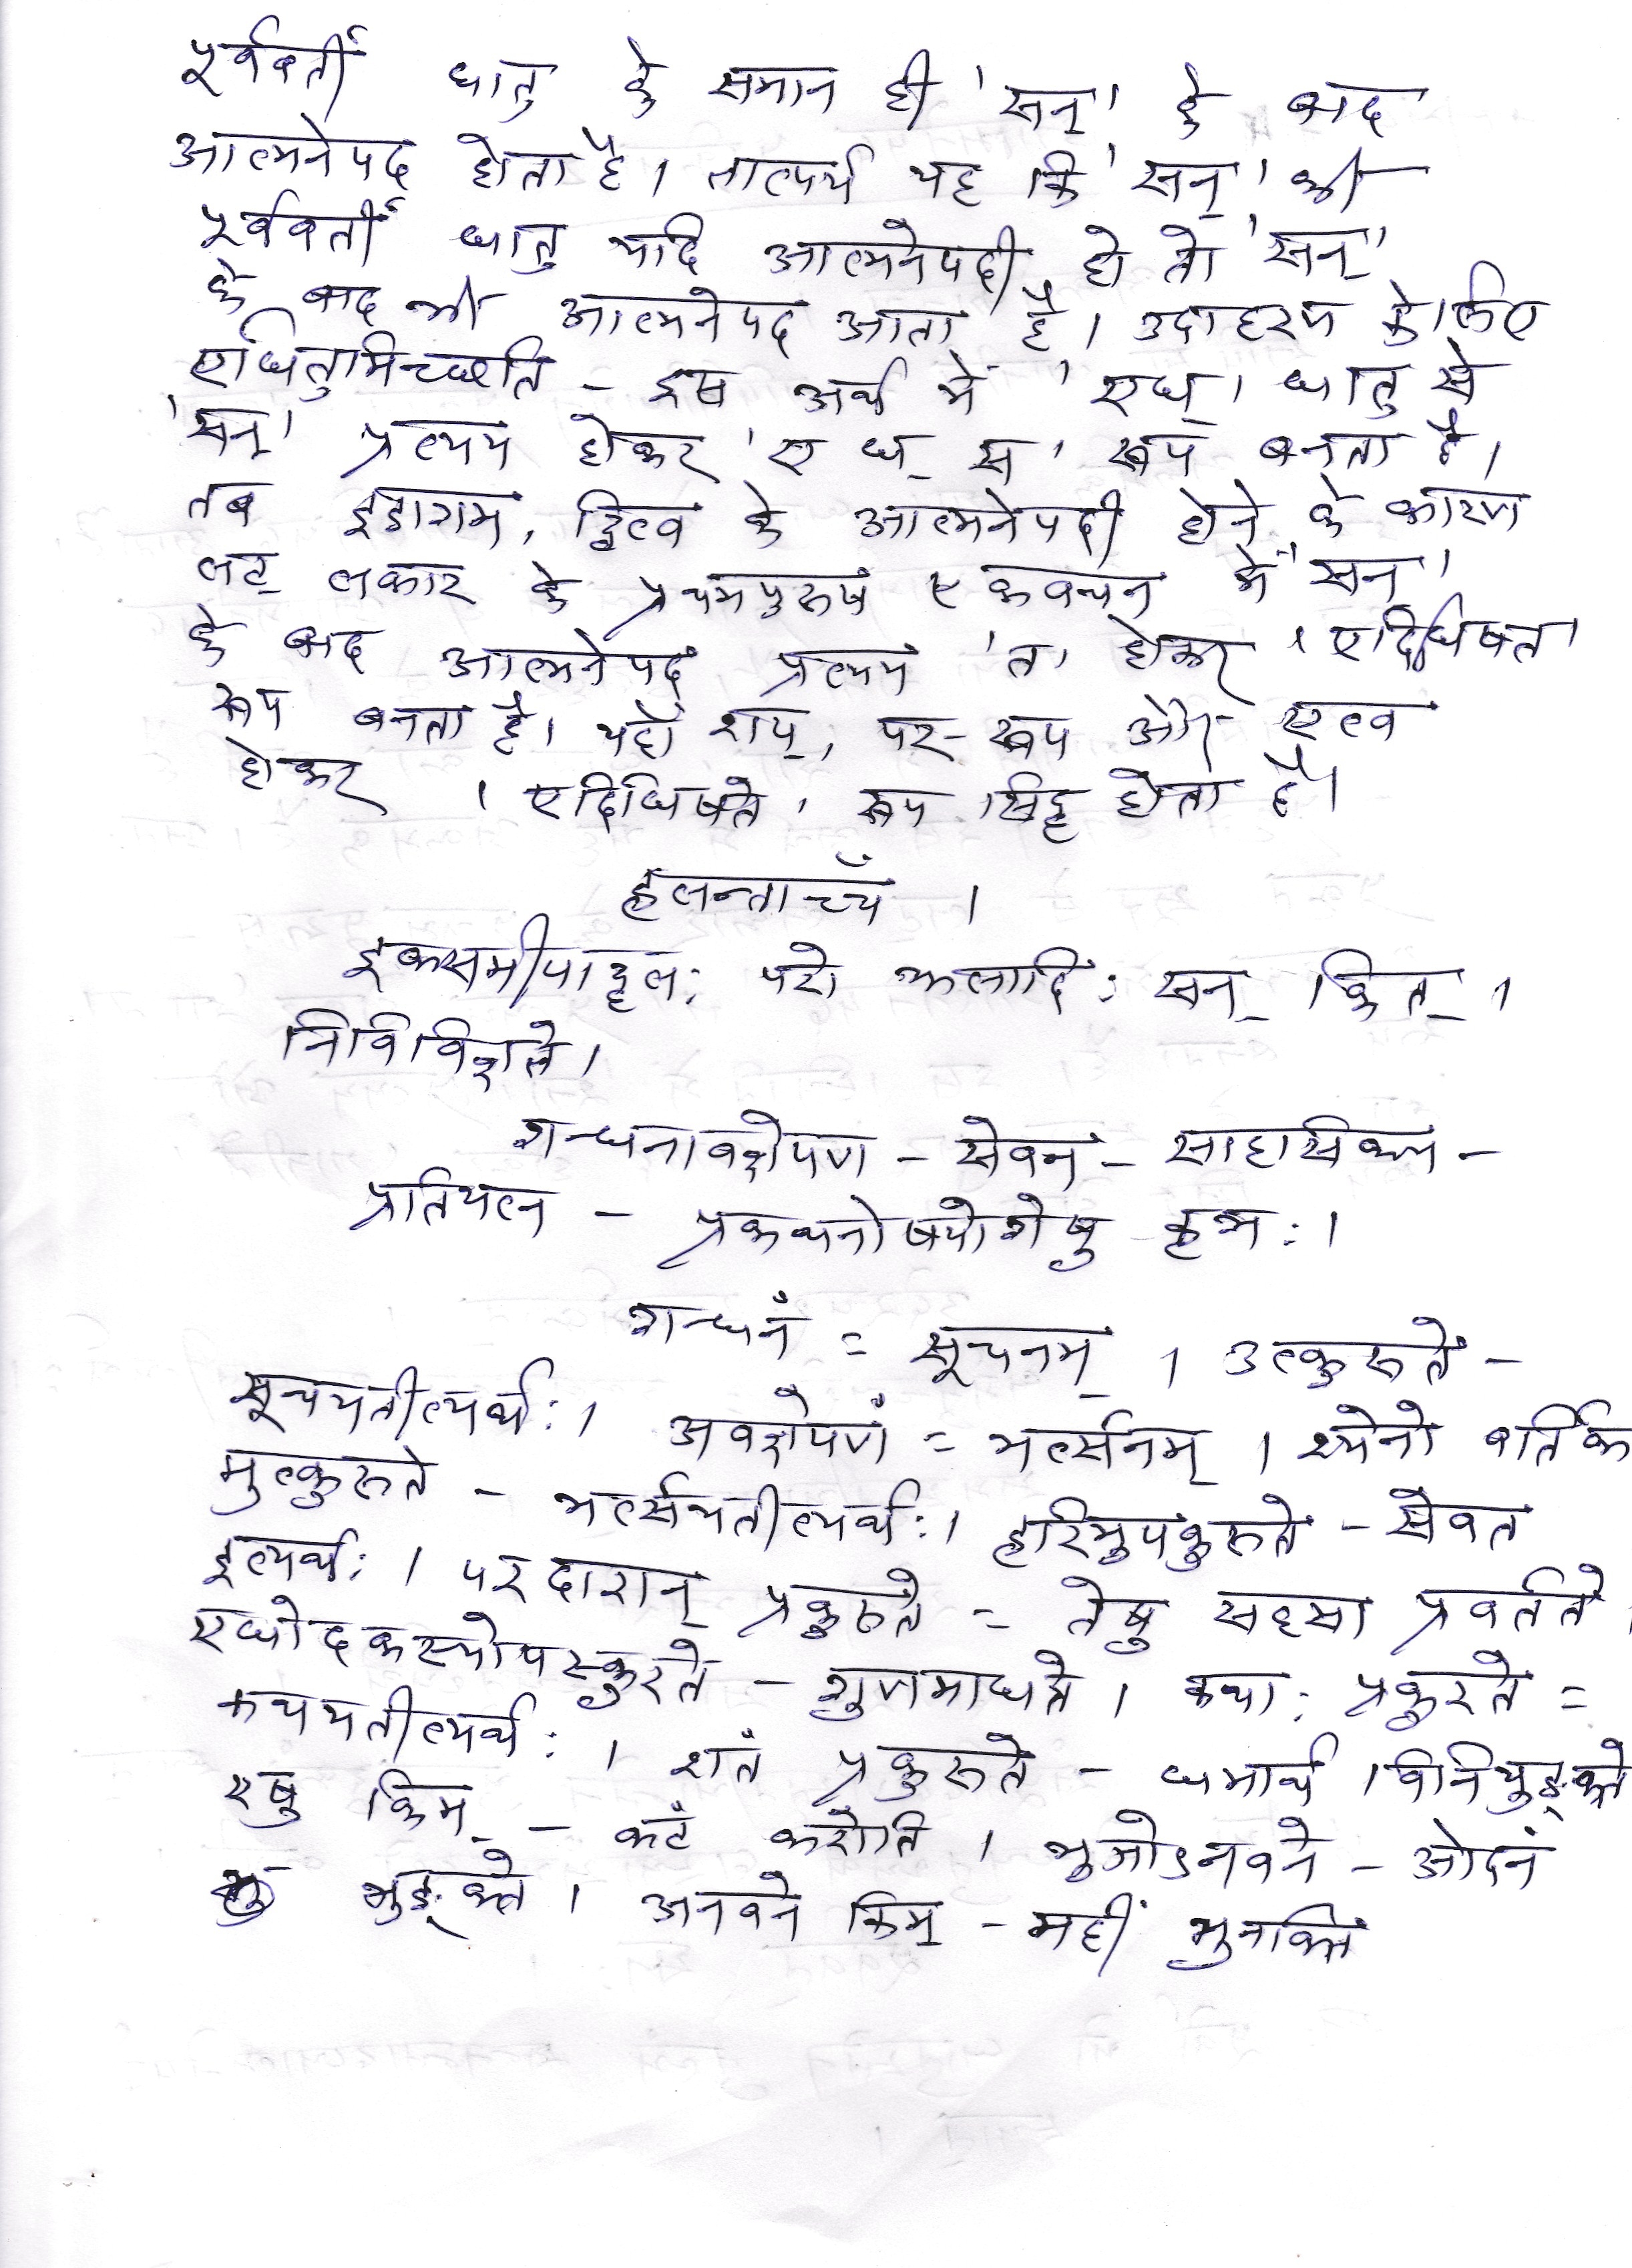 पूर्ववर्ती धातु के समान ही 'सन्' के बाद
आत्मनेपद होता है। तात्पर्य यह कि 'सन्' की
पूर्ववर्ती धातु यदि आत्मनेपदी हो तो 'सन्'
के बाद भी आत्मनेपद आता है। उदाहरण के लिए
एधितुमिच्छति - इस अर्थ में 'एध्' धातु से
'सन्' प्रत्यय होकर 'ए ध् स' रूप बनता है।
तब इडागम, द्वित्व के आत्मनेपदी होने के कारण
लट् लकार के प्रथमपुरुष एकवचन में 'सन्'
के बाद आत्मनेपद प्रत्यय 'त' होकर 'एदिधिषत'
रूप बनता है। यहाँ शप्, पर-रूप और एत्व
होकर 'एदिधिषते' रूप सिद्ध होता है।
हलन्ताच्च ।
इक्समीपाद्धलः परो झलादिः सन् कित् ।
निविविक्षते।
गन्धनावक्षेपण - सेवन - साहसिक्य -
प्रतियत्न - प्रकथनोपयोगेषु कृञः ।
गन्धनं = सूचनम् । उत्कुरुते -
सूचयतीत्यर्थः। अवक्षेपणं = भर्त्सनम् । श्येनो वर्तिका
मुत्कुरुते - भर्त्सयतीत्यर्थः। हरिमुपकुरुते - सेवत
इत्यर्थः । परदारान् प्रकुरुते = तेषु सहसा प्रवर्तते ।
एधोदकस्योपस्कुरते - गुणमाधत्ते । कथाः प्रकुरते =
कथयतीत्यर्थः । शतं प्रकुरुते - धमार्थ विनियुङ्क्ते
एषु किम् - कटं करोति । भुजोऽनवने - ओदनं
भुङ्क्ते । अनवने किम् - महीं भुनक्ति